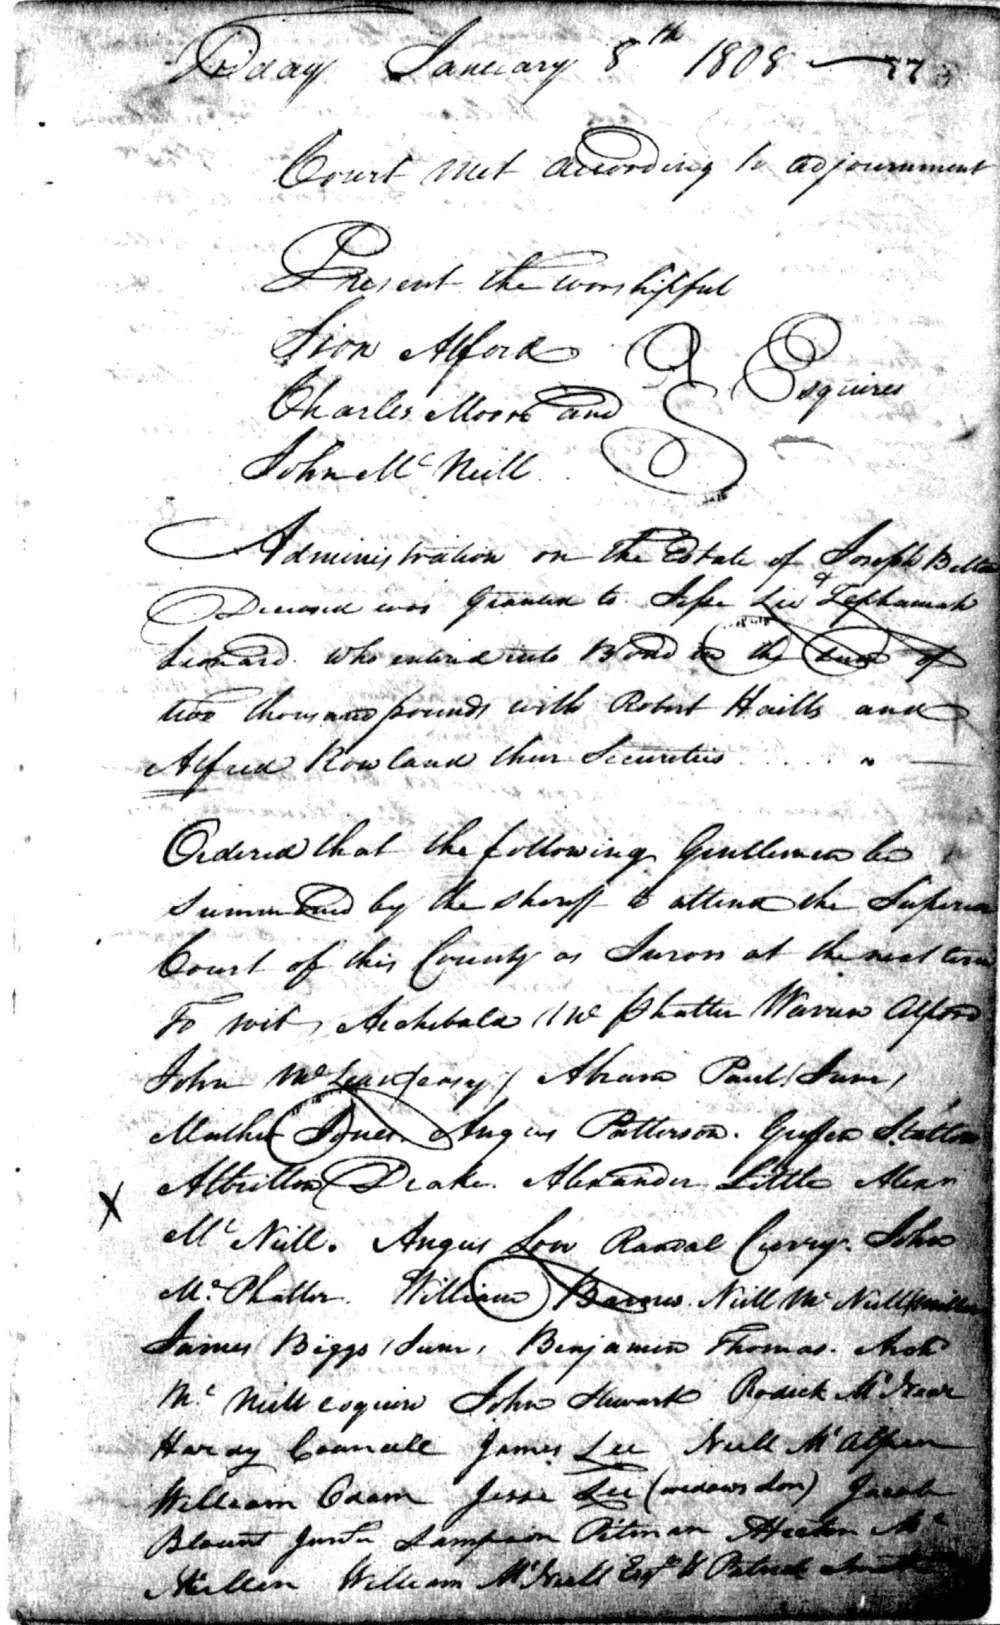 Friday January 8th 1808 77
Court met according to adjournment
Present the worshipful
Sion Alford
Charles Moore and Esquires
John Mc Neill
Administration on the Estate of Joseph
Deceased was Granted to Jesse Lee &
Leonard who entered into Bond in the sum of
two thousand pounds with Robert Hails and
Alfred Rowland their Securities
Ordered that the following Gentlemen be
summoned by the Sheriff to attend the Superior
Court of this County as Jurors at the next term
To wit, Archibald Mc Phatter Warren Alford
John Mc Lean (easy) Abram Paul Junr,
James Angus Patterson. Statton
Albritton Drake. Alexander Little Alexr
Mc Neill. Angus Low Randal Curry. John
Mc Phatter. William Barnes. Neill Mc Neill
James Biggs Junr, Benjamin Thomas. Archd
Mc Neill esquire John Stewart Rodick
Hardy Councell James Lee Neill Mc Alpen
William Odam Jesse Lee Jacob
Blount Sampson Pitman Mc
Millen William Mc Neill Esqr & Patrick